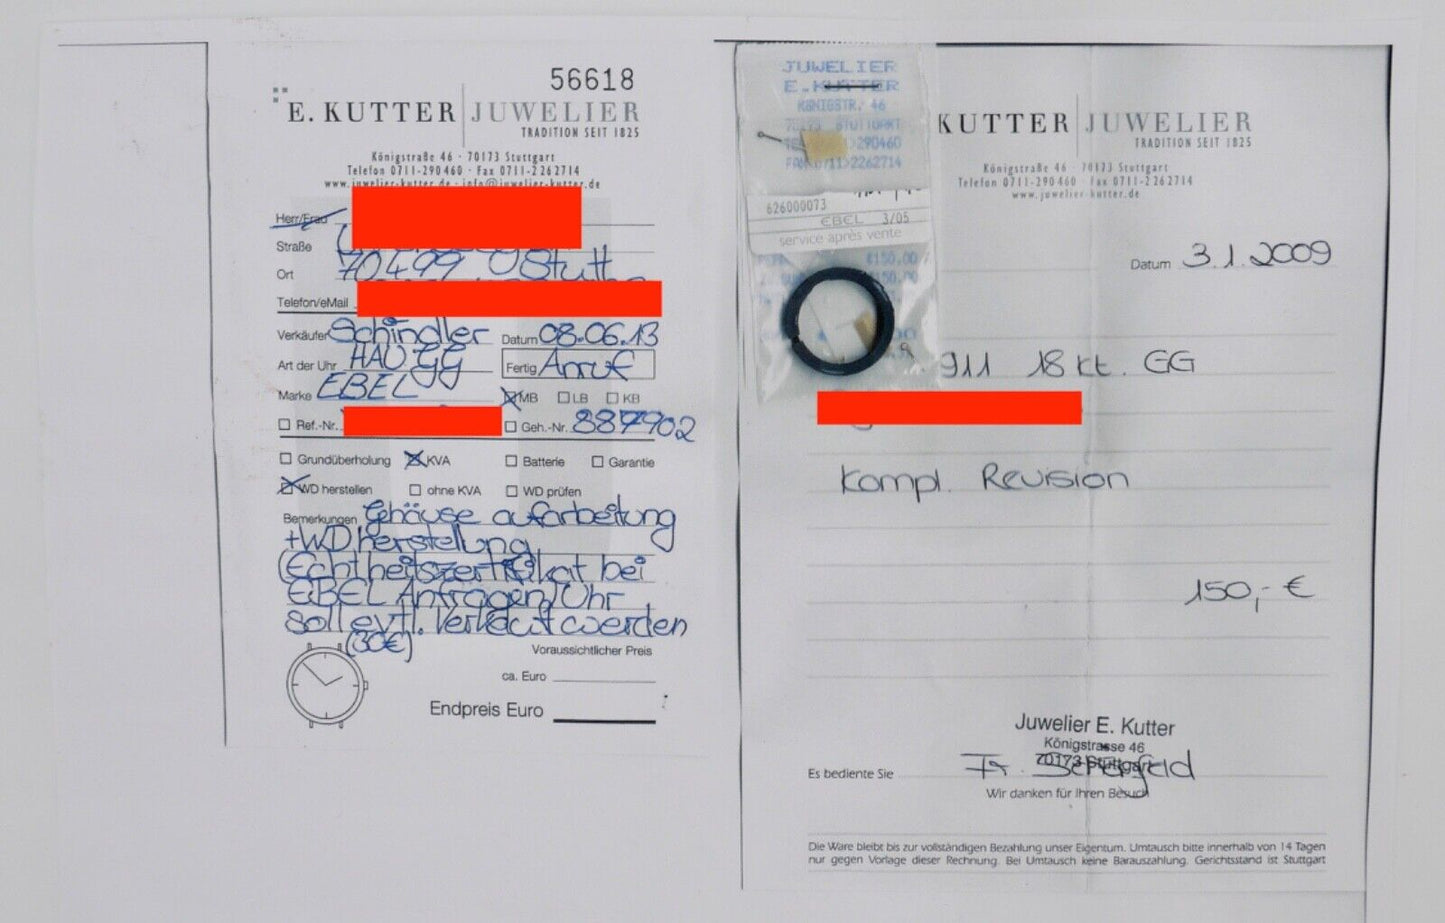 56618
E. KUTTER JUWELIER
TRADITION SEIT 1825
Königstraße 46 · 70173 Stuttgart
Telefon 0711-290460 · Fax 0711-2262714
www.juwelier-kutter.de · info@juwelier-kutter.de
Herr/Frau
Straße
Ort 70499 Stutt
Telefon/eMail
Verkäufer Schindler Datum 08.06.13
Art der Uhr HAU GG Fertig Anruf
Marke EBEL MB LB KB
Ref.-Nr. Geh.-Nr. 887902
Grundüberholung KVA Batterie Garantie
WD herstellen ohne KVA WD prüfen
Bemerkungen Gehäuse aufarbeitung
+WD herstellung
Echtheitszertifikat bei
EBEL Anfragen/Uhr
soll evtl. Verkauft werden
(30€)
Voraussichtlicher Preis
ca. Euro
Endpreis Euro
JUWELIER
E. KUTTER
KÖNIGSTR. 46
STUTTGART
290460
2262714
626000073
EBEL 3/05
service après vente
€150.00
150.00
KUTTER JUWELIER
TRADITION SEIT 1825
Königstraße 46 · 70173 Stuttgart
Telefon 0711-290460 · Fax 0711-2262714
www.juwelier-kutter.de
Datum 3.1.2009
911 18 kt. GG
Kompl. Revision
150,- €
Juwelier E. Kutter
Königstrasse 46
70173 Stuttgart
Es bediente Sie Fr.
Wir danken für Ihren Besuch
Die Ware bleibt bis zur vollständigen Bezahlung unser Eigentum. Umtausch bitte innerhalb von 14 Tagen
nur gegen Vorlage dieser Rechnung. Bei Umtausch keine Barauszahlung. Gerichtsstand ist Stuttgart